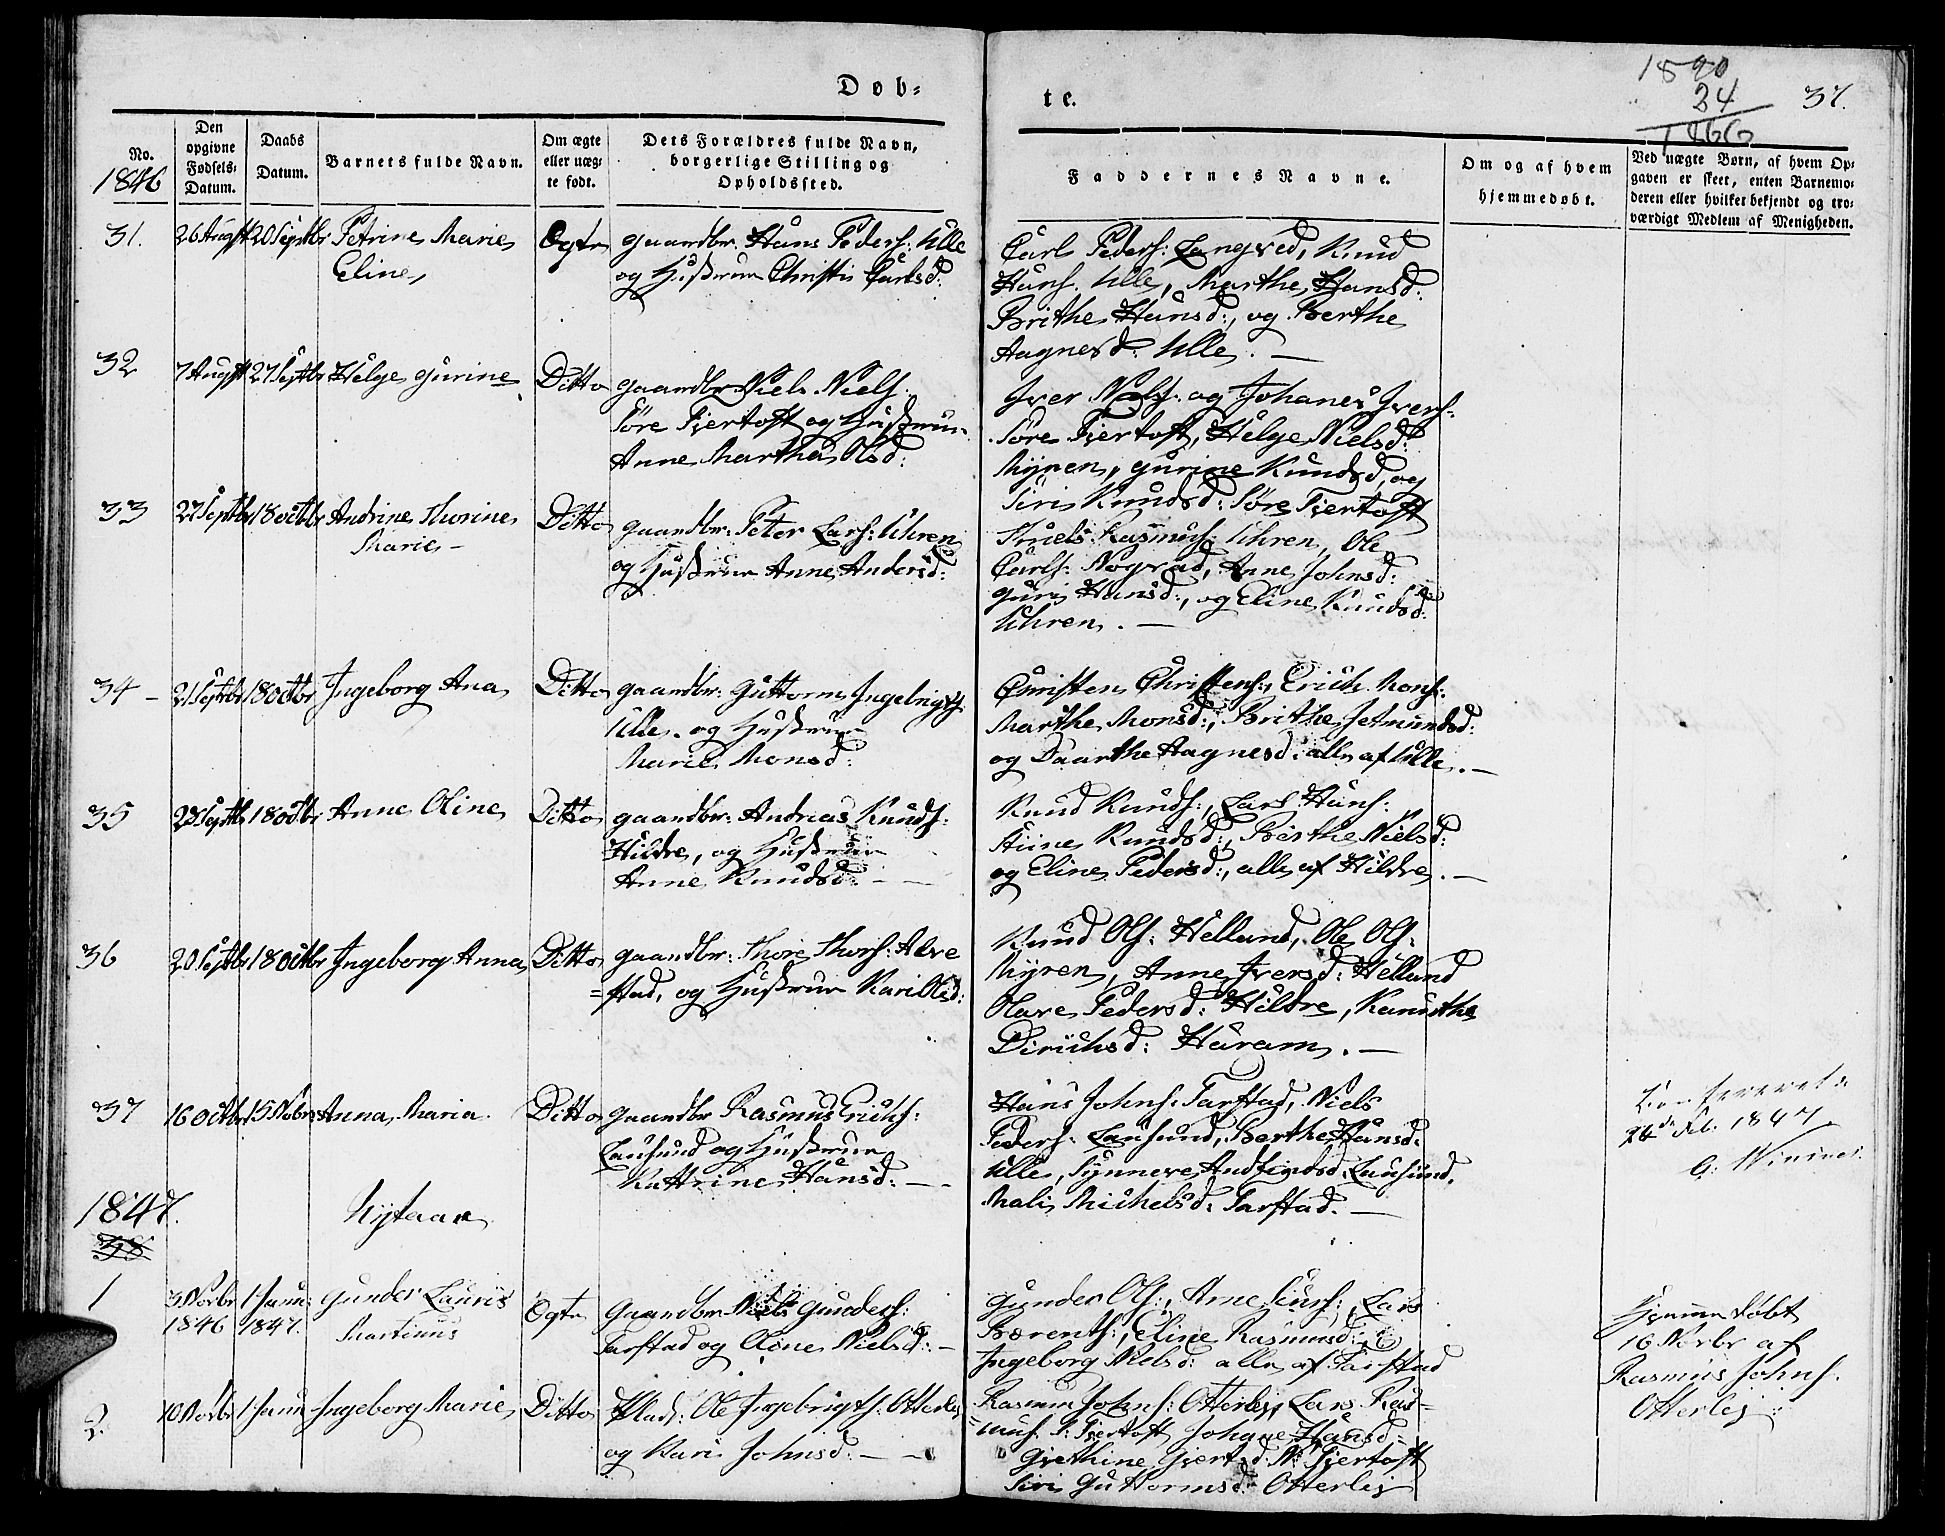 Døb-
te.
1890
24
1866
37.
No.
1846
Den
opgivne
Fødsels-
Datum.
Daabs
Datum.
Barnets fulde Navn.
Om ægte
eller uæg-
te født.
Dets Forældres fulde Navn,
borgerlige Stilling og
Opholdssted.
Faddernes Navne.
Om og af hvem
hjemmedøbt.
Ved uægte Børn, af hvem Op-
gaven er skeet, enten Barnemo-
deren eller hvilket bekjendt og tro-
værdigt Medlem af Menigheden.
31. 26 Augst 20 Septbr Petrine Marie
Eline
Ægte
gaardbr. Hans Peders: Ulle
og Hustrue Christi Carlsd:
Carl Peders: Longved, Knud
Hans. Ulle, Marthe Hansd:
Brithe Hansd:, og Berthe
Aagnesd: Ulle. —
32 7 Augst 27 Septbr Helge gurine
Ditto
gaardbr Niels Niels:
Søre Fjertoft og Hustrue
Anne Martha Olsd:
Iver Niels: og Johanes Ivers:
Søre Fjertoft, Helge Nielsd:
Myren, gurine Knudsd, og
Siri Knudsd: Søre Fjertoft
33 27 Septbr 18 octbr Andrine Thorine
Marie —
Ditto
gaardbr: Peter Lars: Uhren
og Hustrue Anne Andersd:
Rasmus: Uhren, Ole
Carls: Anne Johnsd:
guri Hansd:, og Eline Knudsd:
Uhren. —
34 — 21 Septbr 18 octbr Ingeborg Ana
Ditto
gaardbr: Guttorm Ingebrigts:
Ulle. og Hustrue
Marie Monsd:
Christen Christens:, Erich Mons:
Marthe Monsd:, Brithe Jetmundsd:
og Daarthe Aagnesd: alle af Ulle. —
35 23 Septbr 18 octbr Anne Oline
Ditto
gaardbr: Andreas Knuds:
Hildre, og Hustrue
Anne Knudsd: —
Knud Knuds:, Lars Hans:
Anne Knudsd:, Berthe Nielsd:
og Eline Pedersd:, alle af Hildre. —
36 20 Septbr 18 octbr Ingeborg Anna
Ditto
gaardbr: Thore Thors: Alve
=stad, og Hustrue Kari Olsd:
Knud Ols: Helland, Ole Ols:
Myren, Anne Iversd: Helland
Olave Pedersd: Hildre, Kanuthe
Dirichsd: Haram. —
37 16 octbr 15 Nobr Anna Maria
Ditto
gaardbr Rasmus Erichs:
Lausund og Hustrue
Kattrine Hansd: —
Hans Johns: Farstad, Niels
Peders: Lausund, Berthe Hansd:
Ulle, Synneve Andfindsd. Lausund,
Mali Michelsd: Farstad. —
24de Feb: 1847
1847.
Nytaar
38
1 3 Novbr 1 Janu: gunder Lauris
1846 1847. Martinus
Ægte
Gaardbr Niels gunders:
Farstad og Oline Nielsd: —
gunder Ols:, Arne Lars:, Lars
Bærents:, Eline Rasmusd:,
Ingeborg Nielsd: alle af Farstad
Hjemmedøbt
16 Novbr af
Rasmus Johns.
Otterlej:
2. 10 Novbr 1 Janu Ingeborg Marie
Ditto
Plads: Ole Ingebrigts: Otterlej
og Kari Johnsd: —
Rasmus Johns: Otterlej, Lars Ras=
mus: S: Fjertoft Johane Hansd=
Grethine Giertsd. N: Fjertoft
Siri Guttormsd: Otterlej